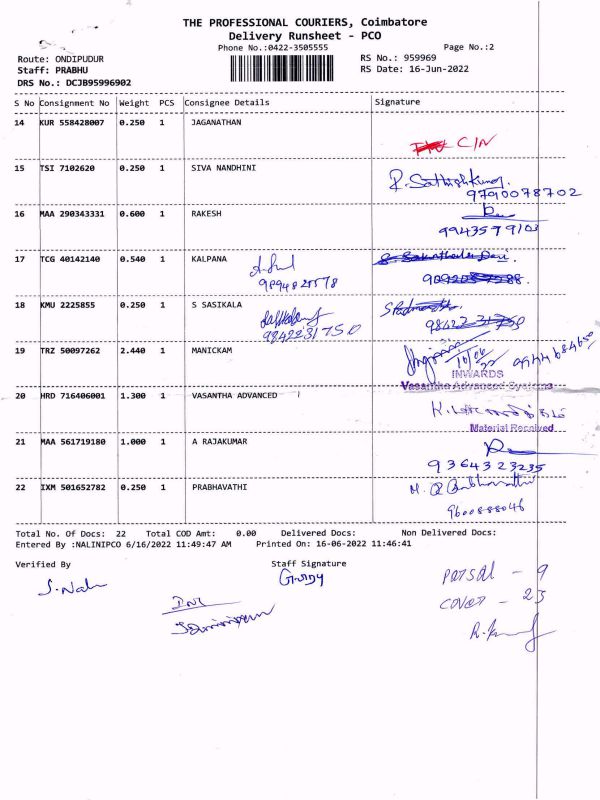 THE PROFESSIONAL COURIERS, Coimbatore
Delivery Runsheet - PCO
Phone No.:0422-3505555
Page No.:2
Route: ONDIPUDUR
RS No.: 959969
Staff: PRABHU
RS Date: 16-Jun-2022
DRS No.: DCJB95996902
S No Consignment No Weight PCS Consignee Details Signature
14 KUR 558428007 0.250 1 JAGANATHAN
C/N
15 TSI 7102620 0.250 1 SIVA NANDHINI
R. Sathishkumar.
9790078702
16 MAA 290343331 0.600 1 RAKESH
17 TCG 40142140 0.540 1 KALPANA
18 KMU 2225855 0.250 1 S SASIKALA
9842231750
19 TRZ 50097262 2.440 1 MANICKAM
INWARDS
Vasantha Advanced Systems
20 HRD 716406001 1.300 1 VASANTHA ADVANCED
Material Received
21 MAA 561719180 1.000 1 A RAJAKUMAR
9364323235
22 IXM 501652782 0.250 1 PRABHAVATHI
9600888046
Total No. Of Docs: 22 Total COD Amt: 0.00 Delivered Docs: Non Delivered Docs:
Entered By :NALINIPCO 6/16/2022 11:49:47 AM Printed On: 16-06-2022 11:46:41
Verified By Staff Signature
Parsal - 9
cover - 23